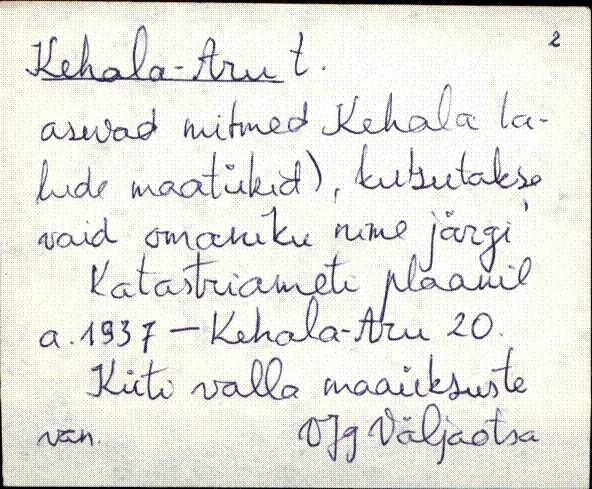 2
Kehala-Aru t.
asuvad mitmed Kehala ta-
lude maatükid), kutsutakse
vaid omaniku nime järgi,
Katastriameti plaanil
a. 1937 — Kehala-Aru 20.
Küti valla maaüksuste
van. VJg Väljaotsa